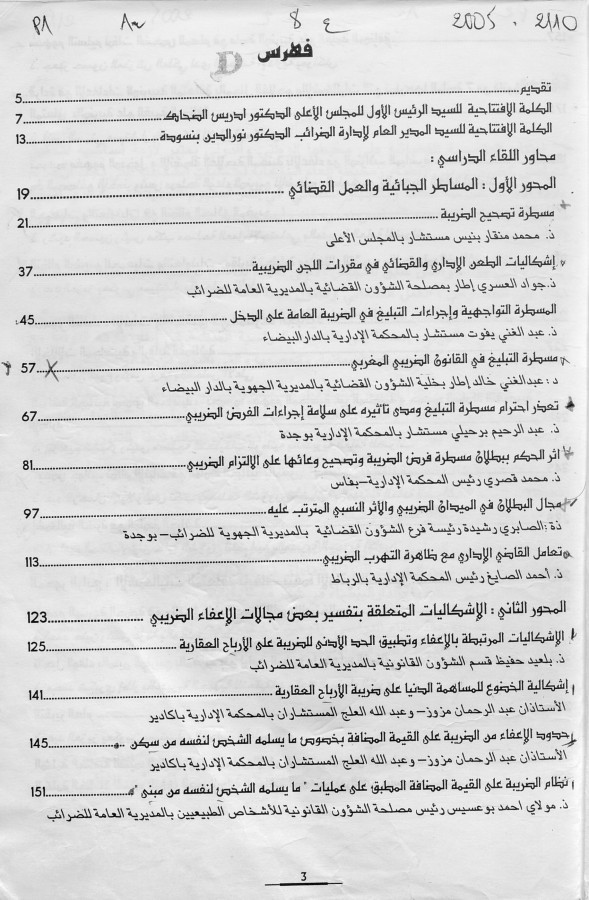 P1 8 ع 2005 . 2110
فهرس
D
تقديم 5
الكلمة الإفتتاحية للسيد الرئيس الأول للمجلس الأعلى الدكتور ادريس الضحاك 7
الكلمة الإفتتاحية للسيد المدير العام لإدارة الضرائب الدكتور نورالدين بنسودة 13
محاور اللقاء الدراسي :
المحور الأول : المساطر الجبائية والعمل القضائي 19
مسطرة تصحيح الضريبة 21
ذ. محمد منقار بنيس مستشار بالمجلس الأعلى
إشكاليات الطعن الإداري والقضائي في مقررات اللجن الضريبية 37
ذ.جواد العسري إطار بمصلحة الشؤون القضائية بالمديرية العامة للضرائب
المسطرة التواجهية وإجراءات التبليغ في الضريبة العامة على الدخل 45
ذ. عبد الغني يفوت مستشار بالمحكمة الإدارية بالدار البيضاء
مسطرة التبليغ في القانون الضريبي المغربي 57
د : عبدالغني خالد إطار بخلية الشؤون القضائية بالمديرية الجهوية بالدار البيضاء
تعذر احترام مسطرة التبليغ ومدى تاثيره على سلامة إجراءات الفرض الضريبي 67
ذ. عبد الرحيم برحيلي مستشار بالمحكمة الإدارية بوجدة
اثر الحكم ببطلان مسطرة فرض الضريبة وتصحيح وعائها على الإلتزام الضريبي 81
ذ. محمد قصري رئيس المحكمة الإدارية-بفاس
مجال البطلان في الميدان الضريبي والأثر النسبي المترتب عليه 97
ذة :الصابري رشيدة رئيسة فرع الشؤون القضائية بالمديرية الجهوية للضرائب– بوجدة
تعامل القاضي الإداري مع ظاهرة التهرب الضريبي 113
ذ. أحمد الصايغ رئيس المحكمة الإدارية بالرباط
المحور الثاني : الإشكاليات المتعلقة بتفسير بعض مجالات الإعفاء الضريبي 123
الإشكاليات المرتبطة بالإعفاء وتطبيق الحد الادنى للضريبة على الأرباح العقارية 125
ذ. بلعيد حفيظ قسم الشؤون القانونية بالمديرية العامة للضرائب
إشكالية الخضوع للمساهمة الدنيا على ضريبة الأرباح العقارية 141
الأستاذان عبد الرحمان مزوز– وعبد الله العلج المستشاران بالمحكمة الإدارية باكادير
حدود الإعفاء من الضريبة على القيمة المضافة بخصوص ما يسلمه الشخص لنفسه من سكن 145
الأستاذان عبد الرحمان مزوز– وعبد الله العلج المستشاران بالمحكمة الإدارية باكادير
نظام الضريبة على القيمة المضافة المطبق على عمليات " ما يسلمه الشخص لنفسه من مبنى " 151
ذ. مولاي احمد بوعسيس رئيس مصلحة الشؤون القانونية للأشخاص الطبيعيين بالمديرية العامة للضرائب
3